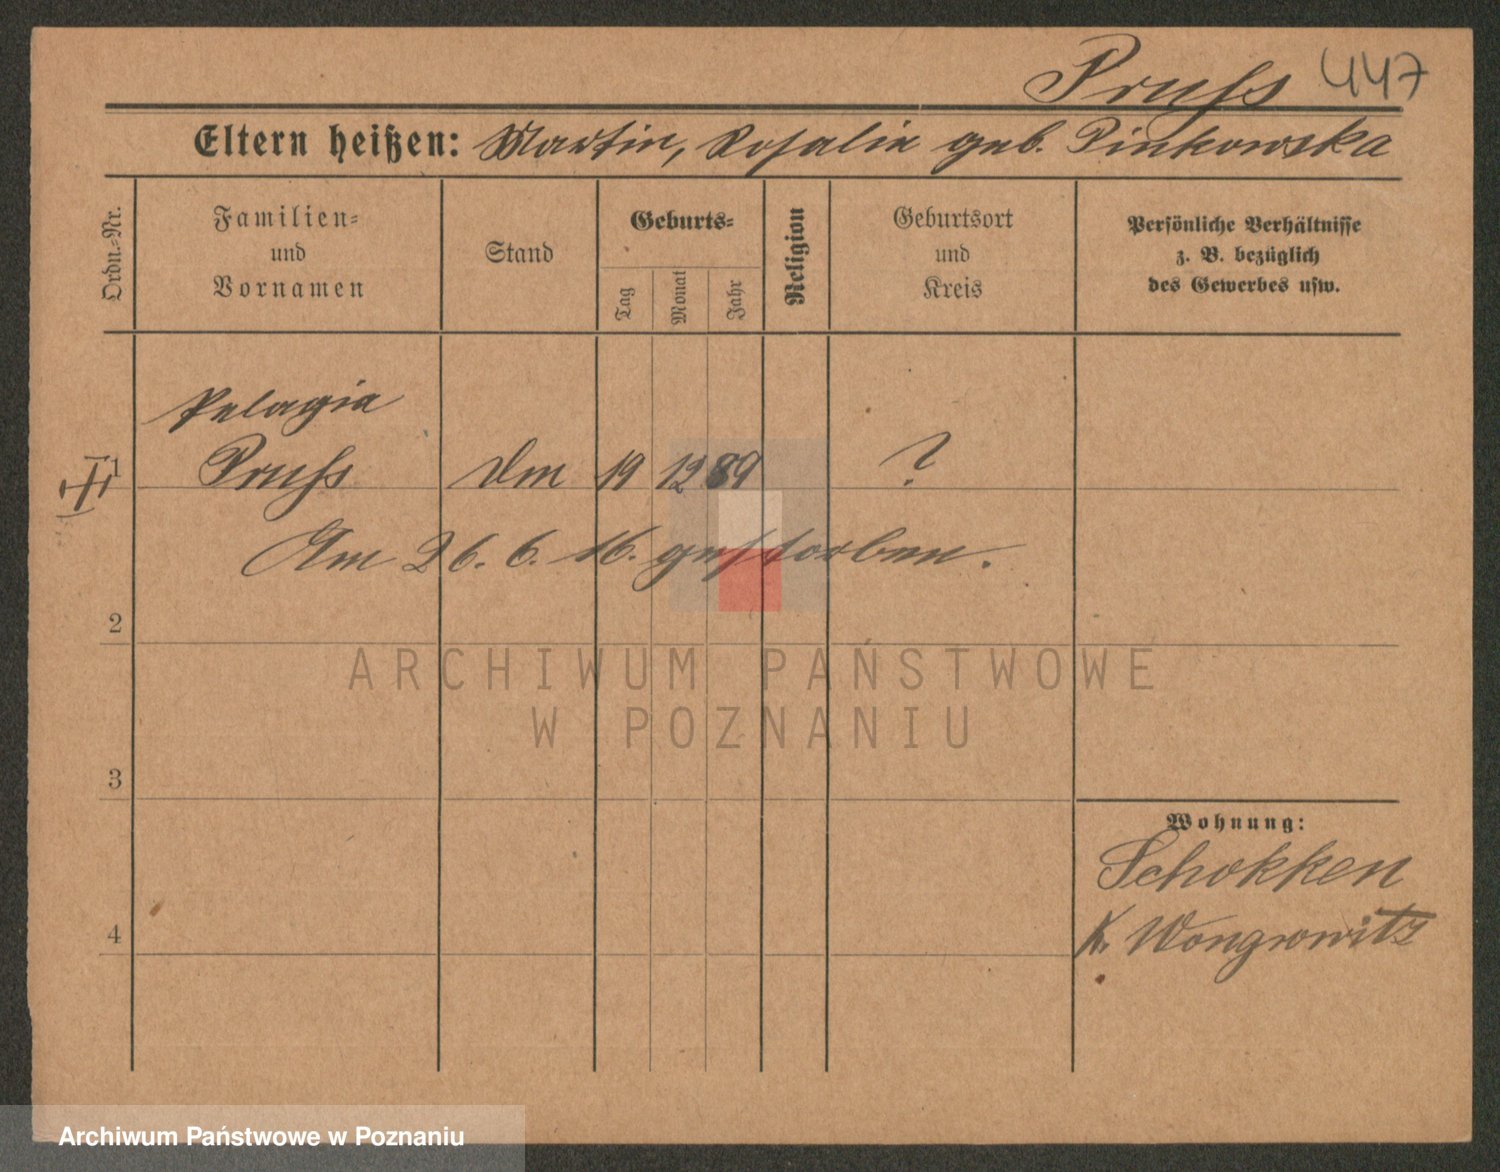 Pruſs 447
Eltern heißen: Martin, Rosalie geb. Pinkowska
Ordn.-Nr.
Familien-
und
Vornamen
Stand
Geburts-
Tag
Monat
Jahr
Religion
Geburtsort
und
Kreis
Persönliche Verhältnisse
z. B. bezüglich
des Gewerbes usw.
Pelagia
1 Pruſs 19 12 89 ?
Am 26. 6. 16. gestorben.
2
ARCHIWUM PAŃSTWOWE
W POZNANIU
3
Wohnung:
Schokken
4 K. Wongrowitz
Archiwum Państwowe w Poznaniu